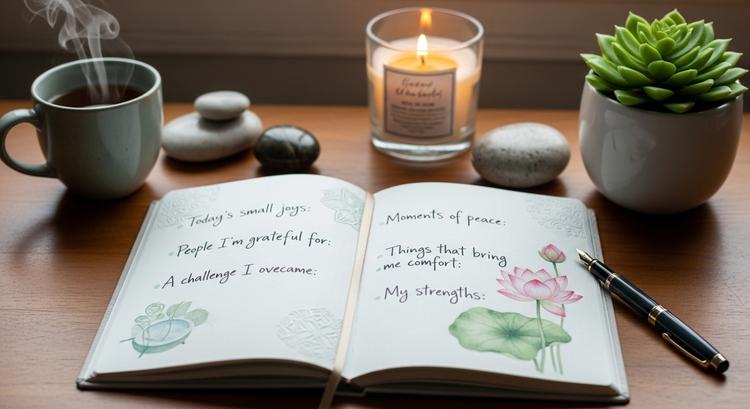 Today's small joys:
People I'm grateful for:
A challenge I ovecame:
Moments of peace:
Things that bring
me comfort:
My strengths: